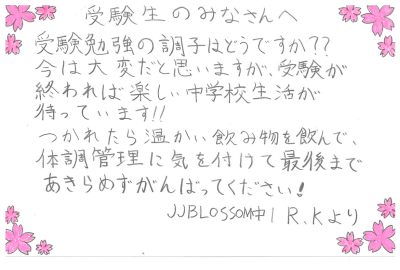 受験生のみなさんへ
受験勉強の調子はどうですか??
今は大変だと思いますが、受験が
終われば楽しい中学校生活が
待っています!!
つかれたら温かい飲み物を飲んで、
体調管理に気を付けて最後まで
あきらめずがんばってください!
JJBLOSSOM中1 R.Kより